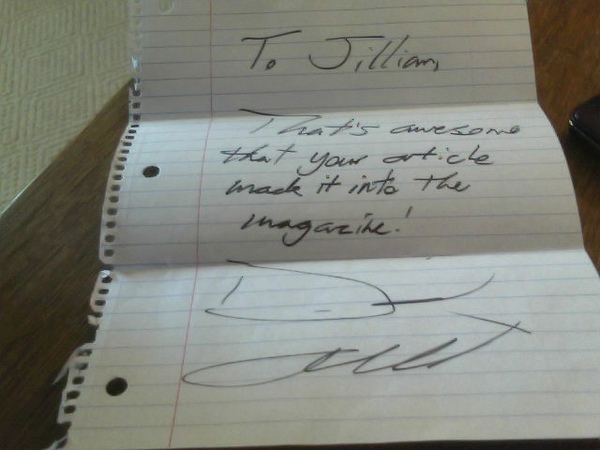 To Jillian,
That's awesome
that your article
made it into the
magazine!